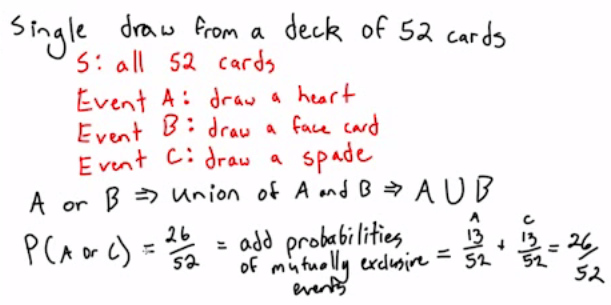 Single draw from a deck of 52 cards
S: all 52 cards
Event A: draw a heart
Event B: draw a face card
Event C: draw a spade
A or B ⇒ Union of A and B ⇒ A ∪ B
P(A or C) = 26/52 = add probabilities of mutually exclusive events = A 13/52 + C 13/52 = 26/52